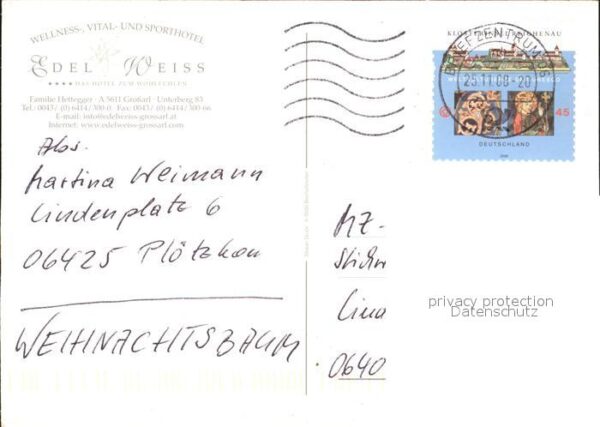 WELLNESS-, VITAL- UND SPORTHOTEL
EDEL WEISS
★★★★ DAS HOTEL ZUM WOHLFÜHLEN
Familie Hettegger · A 5611 Großarl · Unterberg 83
Tel. 0043/ (0) 6414/300-0 Fax: 0043/ (0) 6414/300-66
E-mail: info@edelweiss-grossarl.at
Internet: www.edelweiss-grossarl.com
Abs.
Martina Weimann
Lindenplatz 6
06425 Plötzkau
WEIHNACHTSBAUM
KLOSTERINSEL REICHENAU
BRIEFZENTRUM 06
45
DEUTSCHLAND
MZ-
Lina
0640
privacy protection
Datenschutz